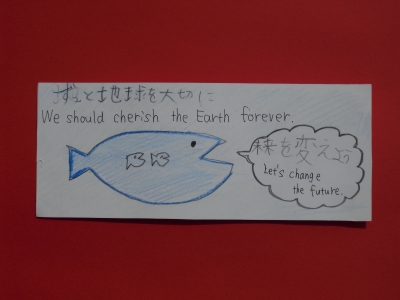 ずっと地球を大切に
We should cherish the Earth forever.
未来を変えよう
Let's change
the future.